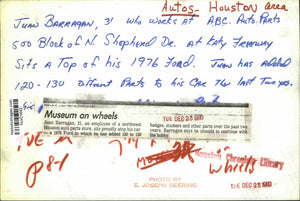 Autos - Houston area
Juan Barragan, 31 who works at ABC Auto Parts
500 Block of N. Shepherd Dr. at Katy Freeway
Sits a Top of his 1976 Ford. Juan has added
120 - 130 Different Parts to his Car The Last Two yrs.
TUE DEC 25 1980
Museum on wheels
Juan Barragan, 31, an employee of a northwest
Houston auto parts store, sits proudly atop his car
a 1976 Ford to which he has added 120 to 130
badges, stickers and other parts over the past two
years. Barragan says he intends to continue with
the hobby.
TUE DEC 25 1980
Houston Chronicle Library
P 8-1
wheels
PHOTO BY
E. JOSEPH DEERING